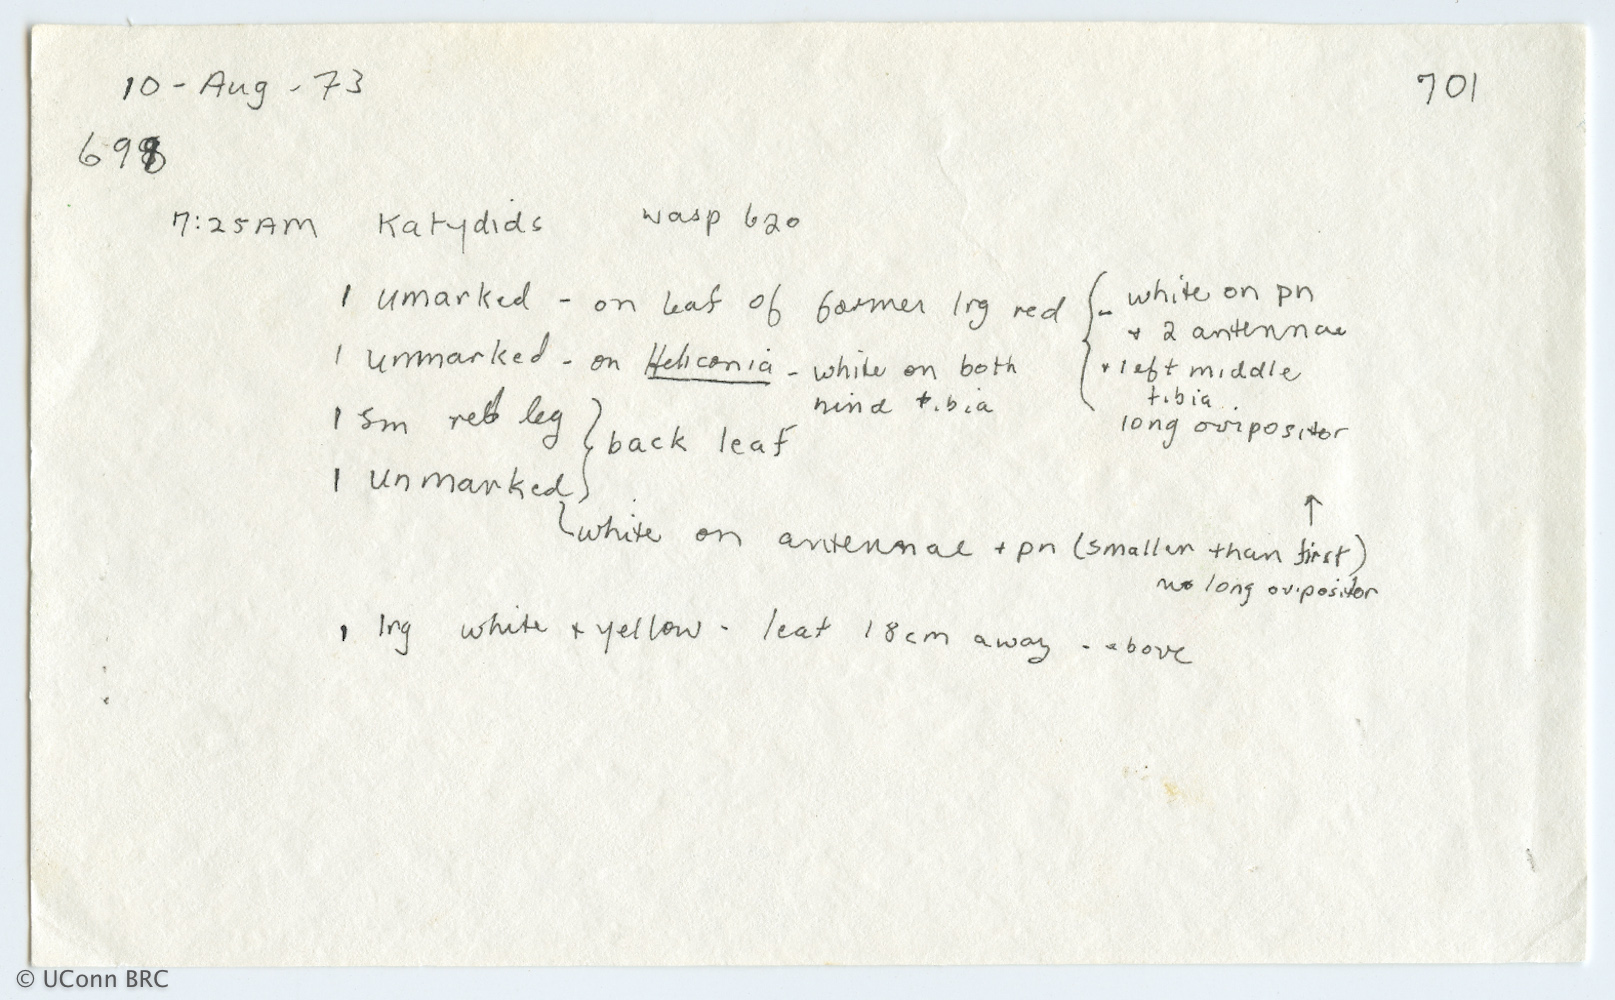 10 - Aug - 73
701
698
7:25 AM Katydids wasp 620
1 umarked - on leaf of former lrg red { - white on pn
+ 2 antennae
1 unmarked - on Heliconia - white on both
+ left middle
hind tibia
tibia
1 sm red leg } back leaf
long ovipositor
1 unmarked
↑
{ white on antennae + pn (smaller than first)
no long ovipositor
1 lrg white + yellow - leaf 18cm away - above
© UConn BRC